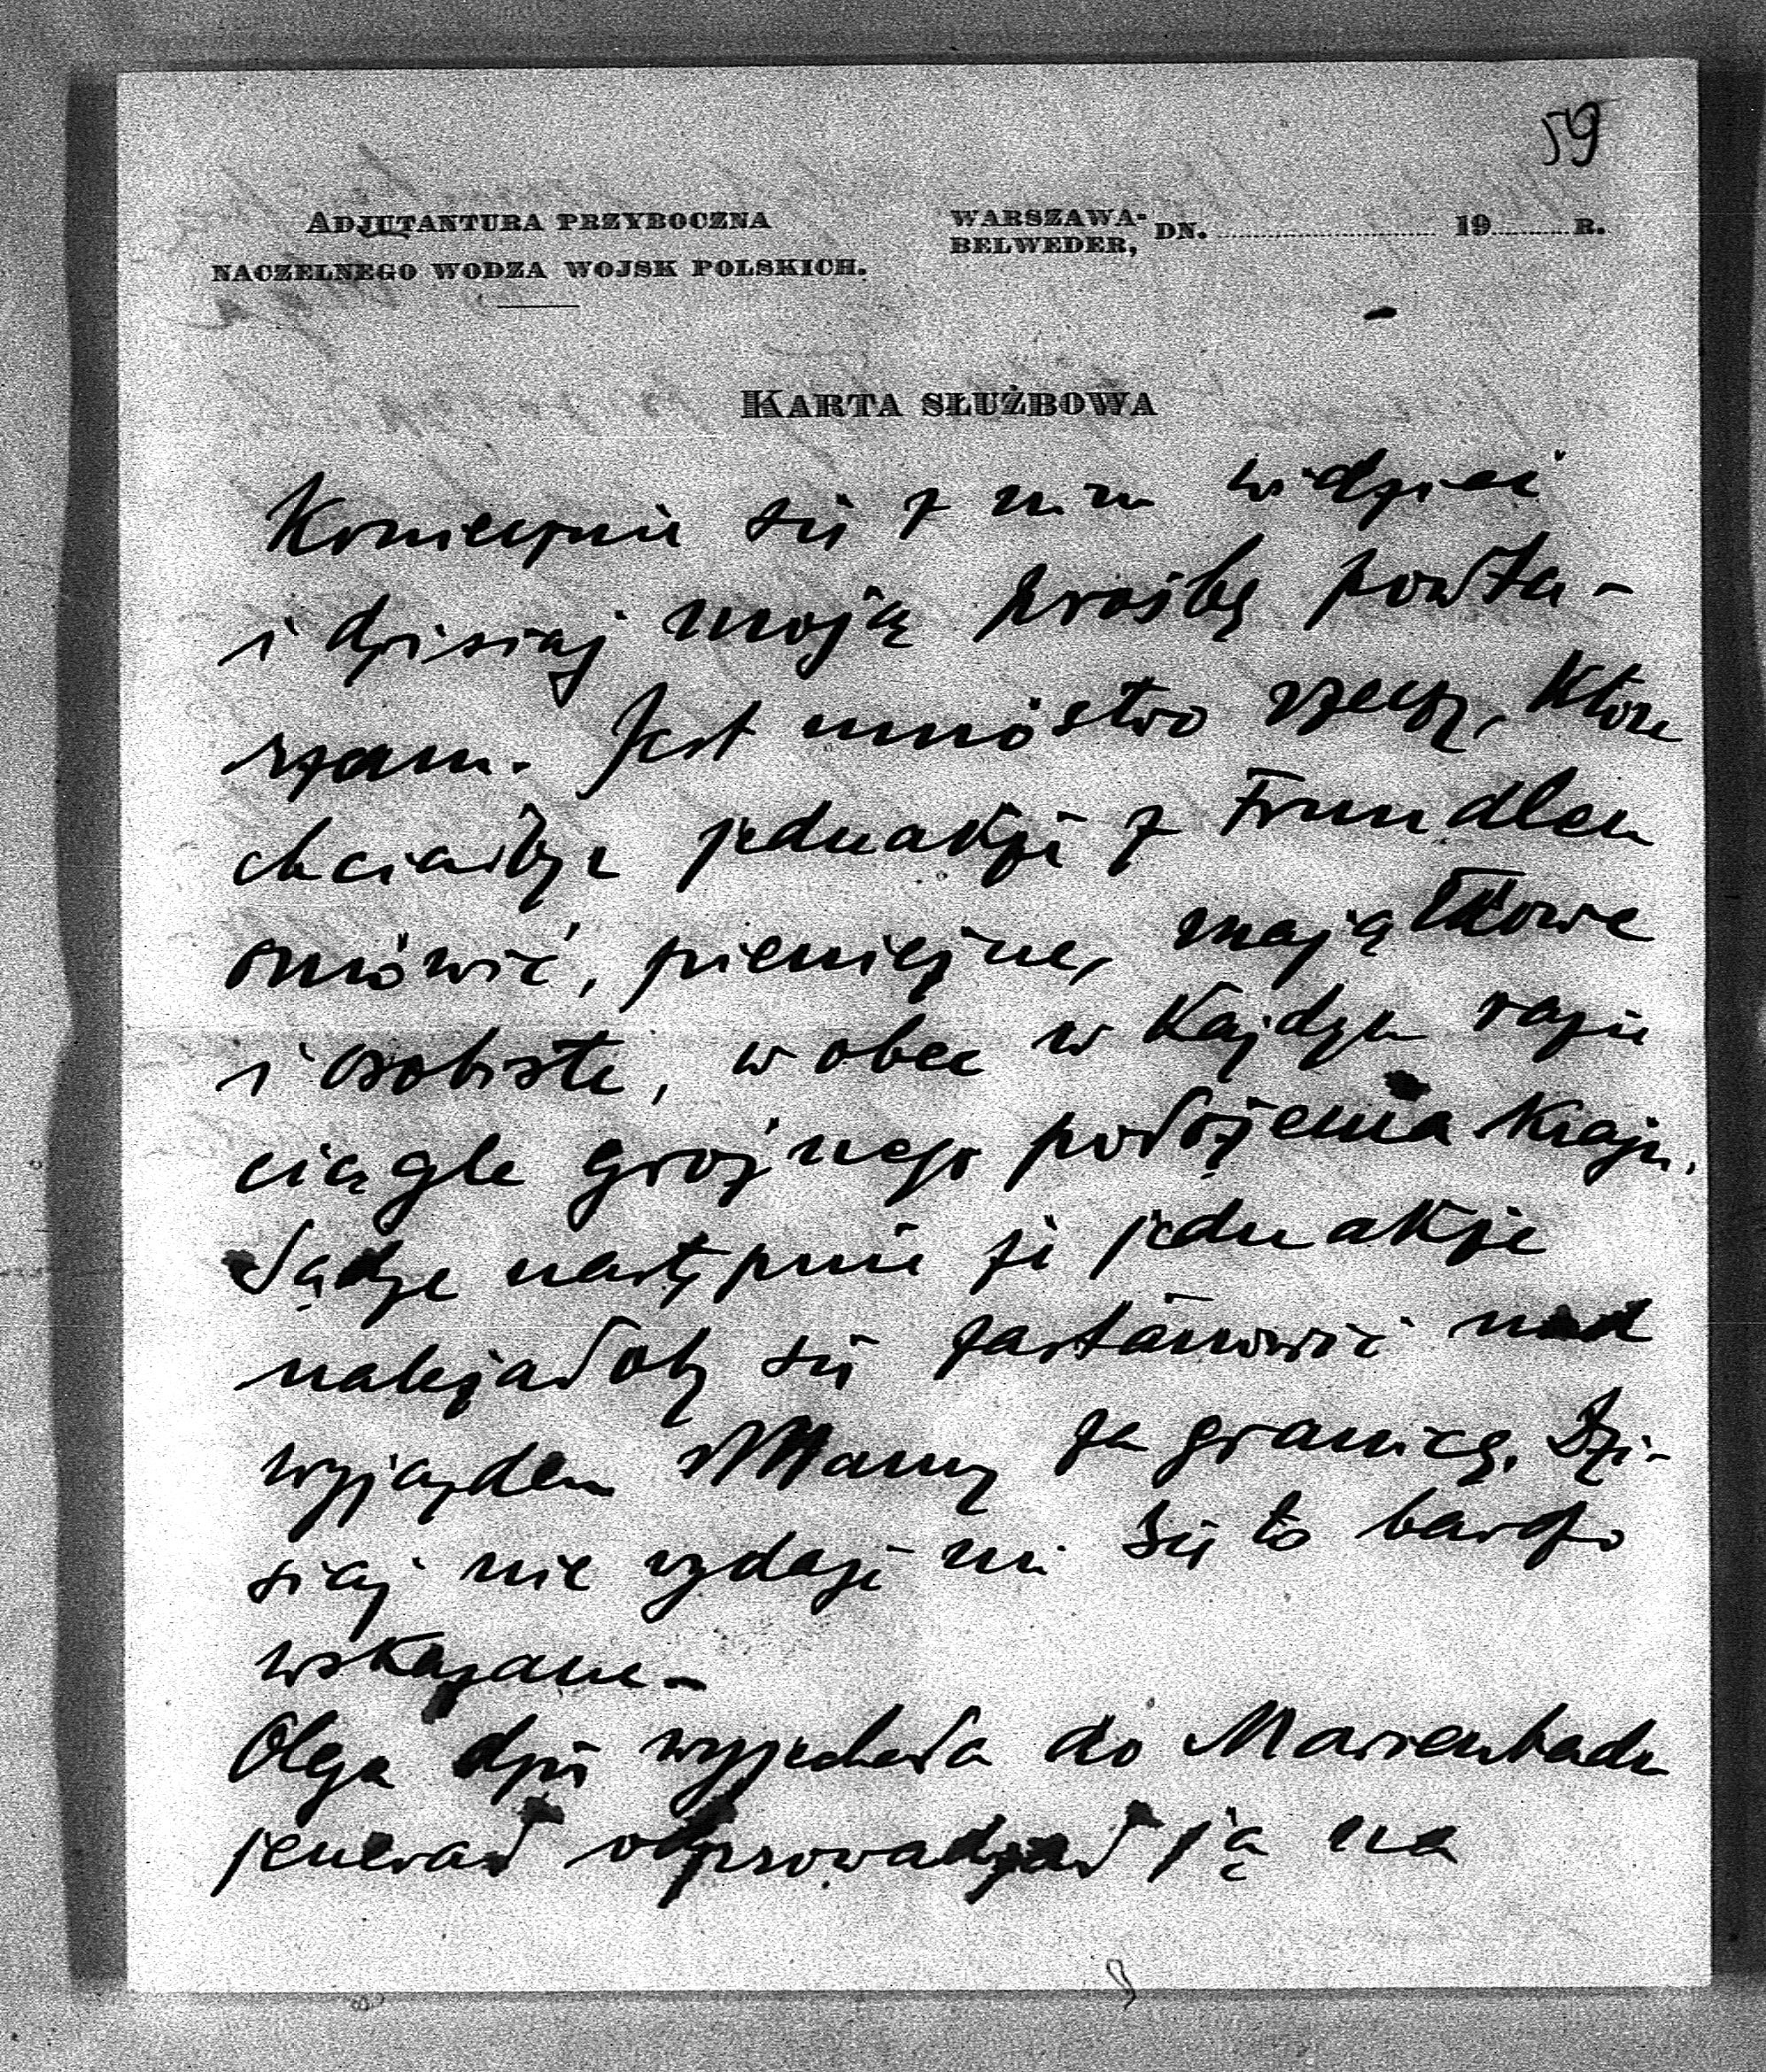 59
ADJUTANTURA PRZYBOCZNA
NACZELNEGO WODZA WOJSK POLSKICH.
WARSZAWA-
BELWEDER, DN. 19 R.
KARTA SŁUŻBOWA
Koniecznie się z nim widzieć
i dzisiaj moją prośbę powta-
rzam. Jest mnóstwo rzeczy, które
chciałbym jednakże z Frundlem
omówić, pieniężne, majątkowe
i osobiste, wobec w każdym razie
ciągle groźnego położenia kraju.
Sądzę następnie że jednakże
należałoby się zastanowić nad
wyjazdem Mamy za granicę. Dzi-
siaj nie wydaje mi się to bardzo
wskazane.
Olga dziś wyjechała do Marienbadu
jenerał odprowadzał ją na